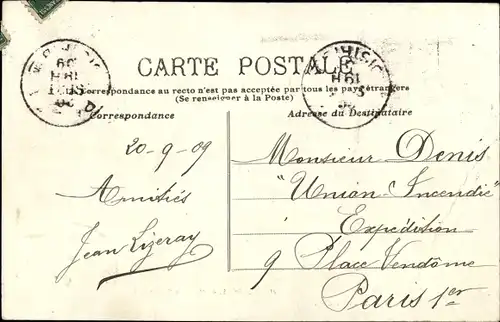 CARTE POSTALE
La Correspondance au recto n'est pas acceptée par tous les pays étrangers
(Se renseigner à la Poste)
Correspondance
Adresse du Destinataire
20-9-09
Amitiés
Jean Lizeray
Monsieur Denis
"Union-Incendie"
Expédition
9 Place Vendôme
Paris 1er